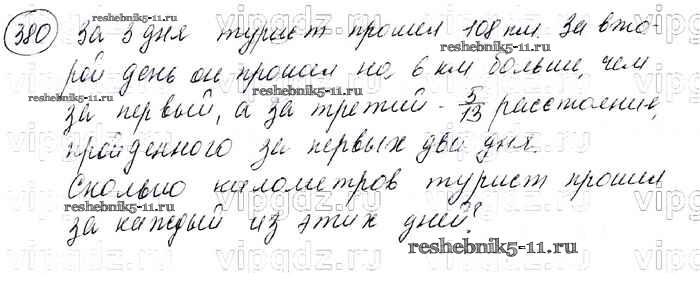 380 За 3 дня турист прошел 108 км. За вто-
рой день он прошел на 6 км больше, чем
за первый, а за третий - 5/13 расстояния,
пройденного за первых два дня.
Сколько километров турист прошел
за каждый из этих дней?
reshebnik5-11.ru
reshebnik5-11.ru
reshebnik5-11.ru
reshebnik5-11.ru
reshebnik5-11.ru
vipgdz.ru